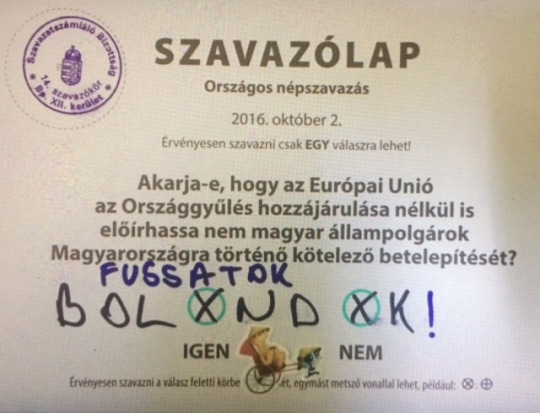 Szavazatszámláló Bizottság
14. szavazókör
Bp. XII. kerület
SZAVAZÓLAP
Országos népszavazás
2016. október 2.
Érvényesen szavazni csak EGY válaszra lehet!
Akarja-e, hogy az Európai Unió
az Országgyűlés hozzájárulása nélkül is
előírhassa nem magyar állampolgárok
Magyarországra történő kötelező betelepítését?
FUSSATOK
BOLXND XK!
IGEN NEM
Érvényesen szavazni a válasz feletti körbe ét, egymást metsző vonallal lehet, például: ⊗ ⊕